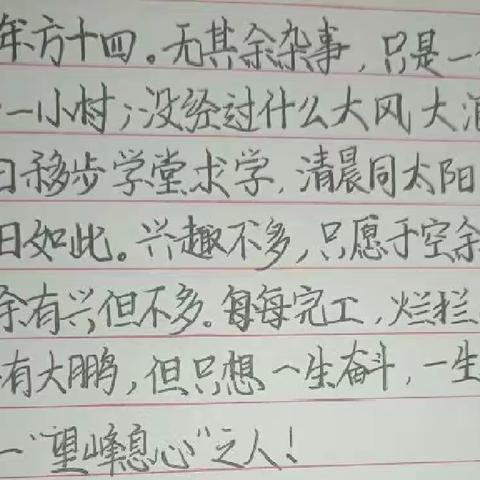 年方十四。无其余杂事，只是一
一小村；没经过什么大风大浪
日移步学堂求学，清晨同太阳
日如此。兴趣不多，只愿于空余
余有兴但不多。每每完工，烂拦
有大鹏，但只想一生奋斗，一生
一“望峰息心”之人！